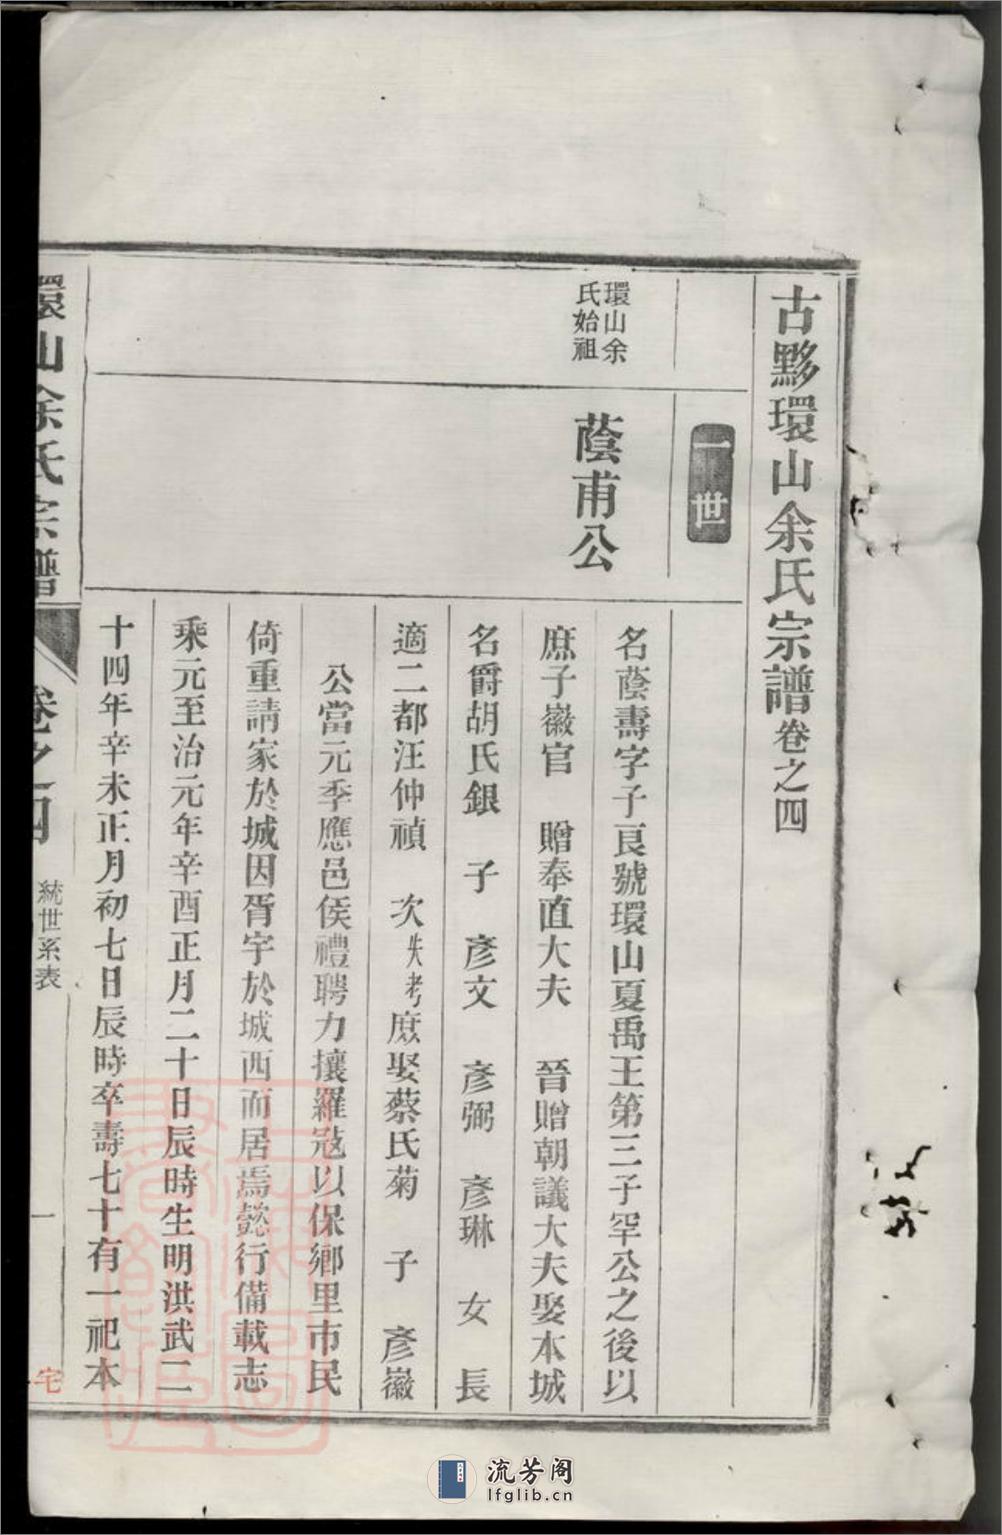 古黟環山余氏宗譜卷之四
一世
環山余
氏始祖
蔭甫公
名蔭壽字子良號環山夏禹王第三子罕公之後以
庶子徽官　贈奉直大夫　晉贈朝議大夫娶本城
名爵胡氏銀　子　彥文　彥弼　彥琳　女　長
適二都汪仲禎　次失考庶娶蔡氏菊　子　彥徽
公當元季應邑侯禮聘力攘羅冦以保鄉里市民
倚重請家於城因胥宇於城西而居焉懿行備載志
乘元至治元年辛酉正月二十日辰時生明洪武二
十四年辛未正月初七日辰時卒壽七十有一祀本
環山余氏宗譜
卷之四
統世系表
一
宅
流芳阁
lfglib.cn